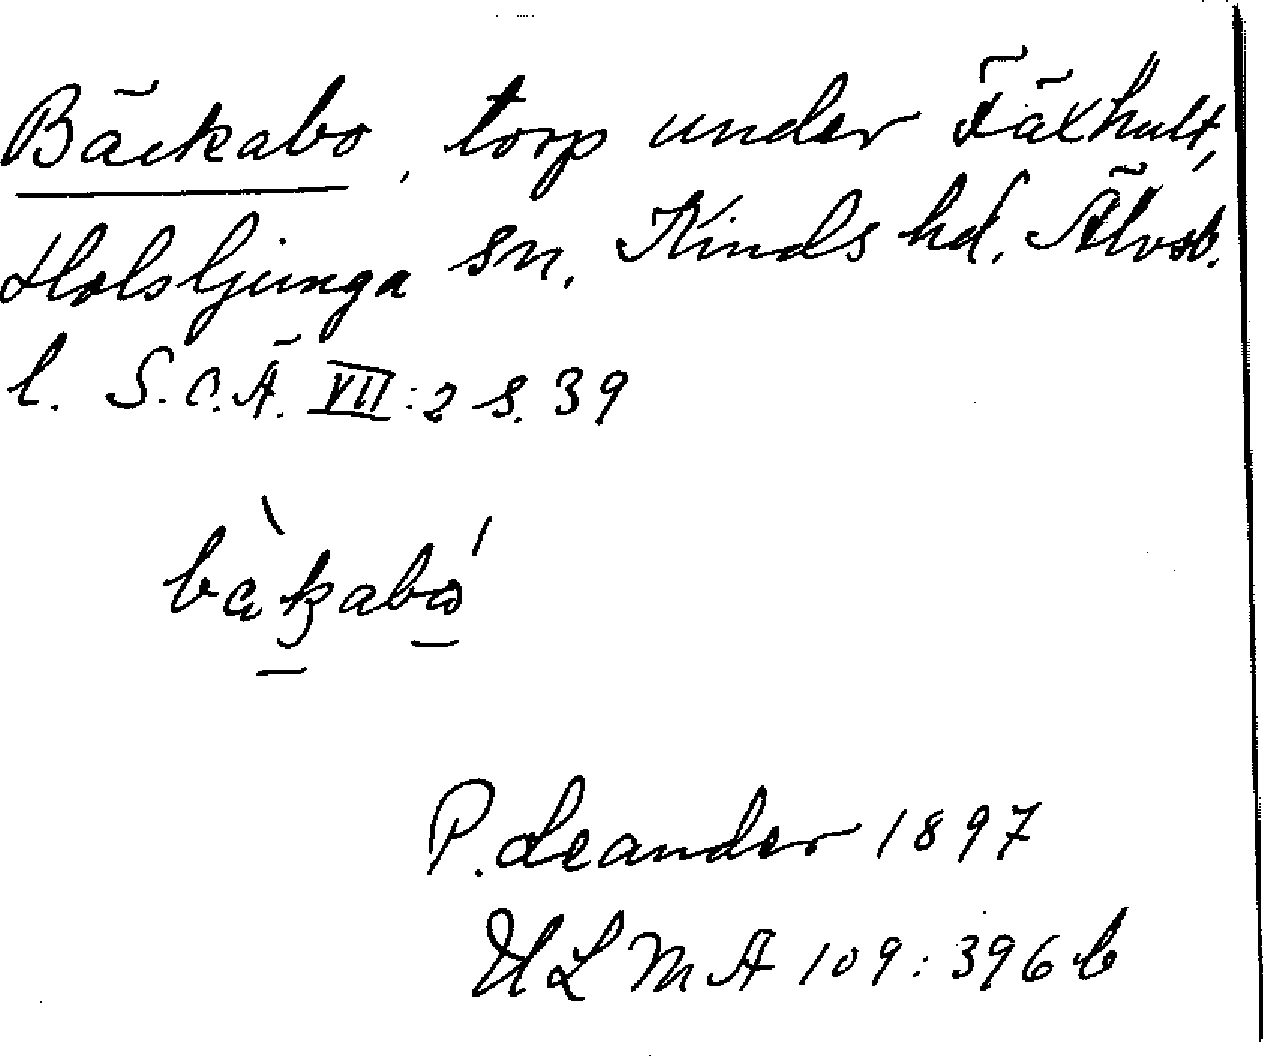 Bäckabo, torp under Fäxhult,
Holsljunga sn. Kinds hd. Älvsb.
l. S.O.Ä. VII:2 s. 39
P. Leander 1897
ULMA 109:396 b